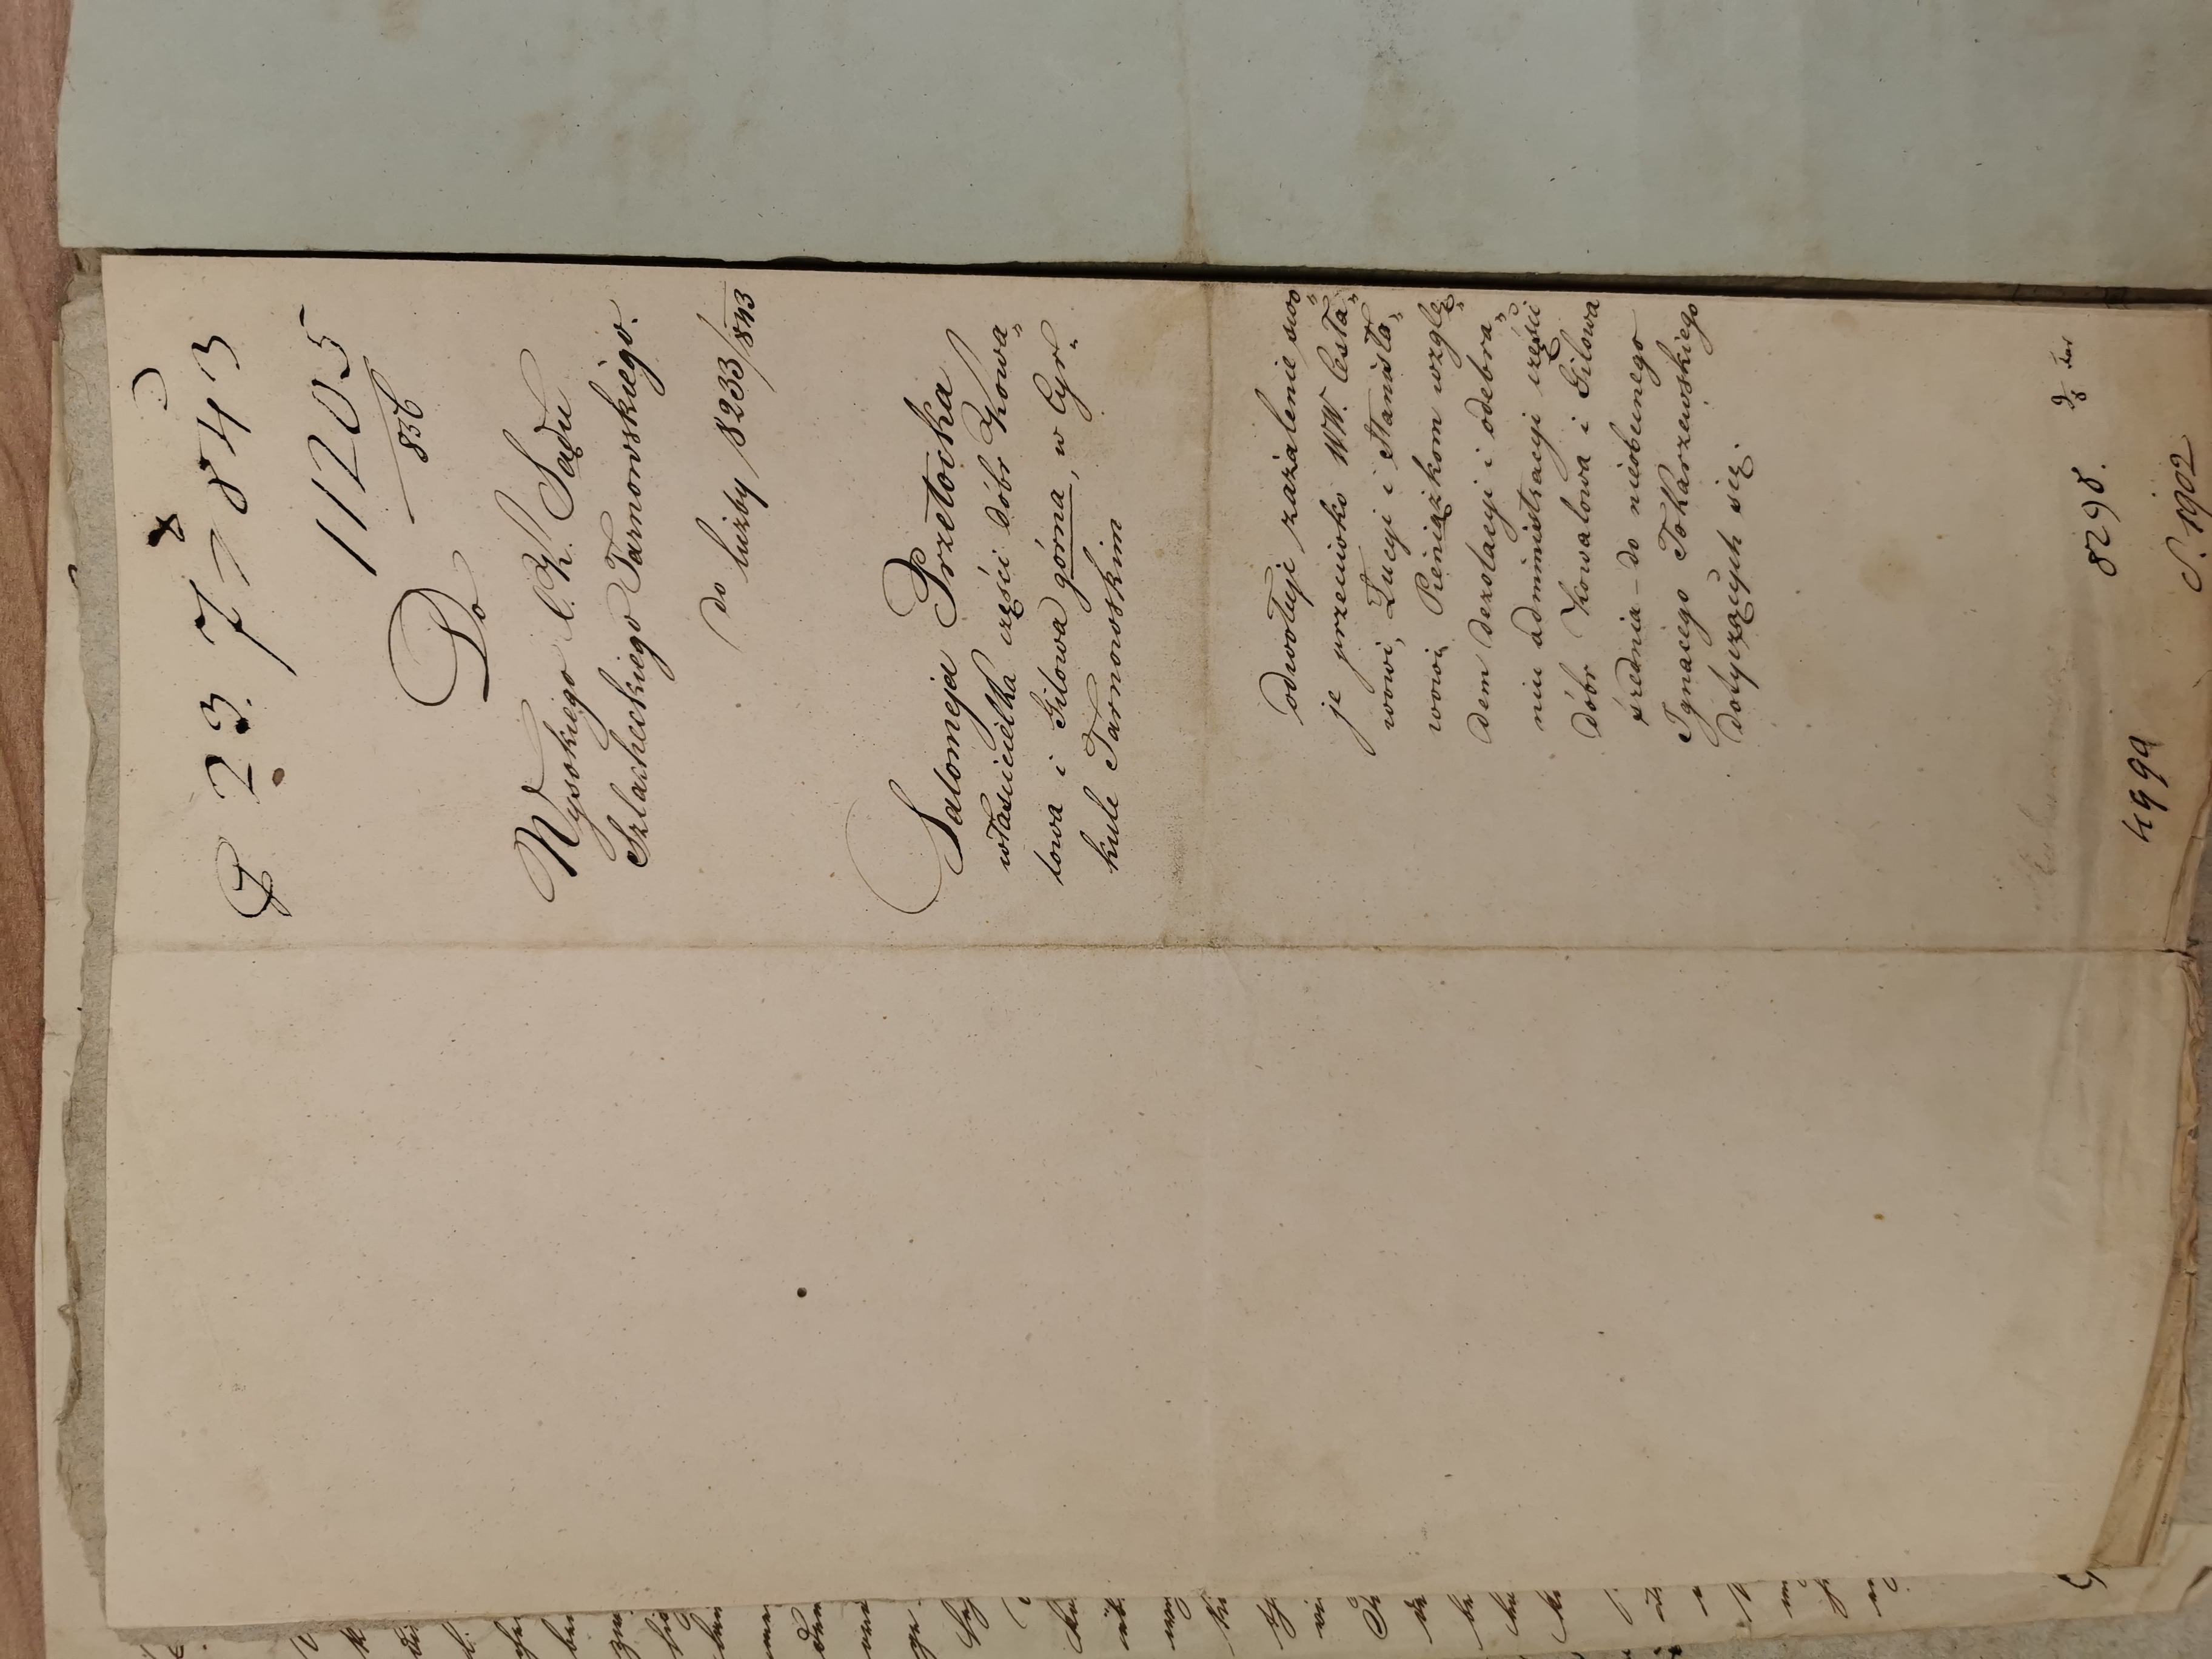 23. 7 843
11205
836
Do
Wysokiego C. K. Sądu
Szlacheckiego Tarnowskiego.
do liczby 8233/843
Salomeja Przetocka
właścicielka części dóbr Kowa„
lowa i Gilowa górna, w Cyr„
kule Tarnowskim
odwołuje zażalenie swo„
je przeciwko WW. Cesła„
wowi, Lucyi i Stanisła„
wowi Pieniążkom wzglę„
dem dezolacyi i odebra„
niu administracyi części
dóbr Kowalowa i Gilowa
średnia – do nieobecnego
Ignacego Tokarzewskiego
dotyczących się.
8298.
4999
S. 1902